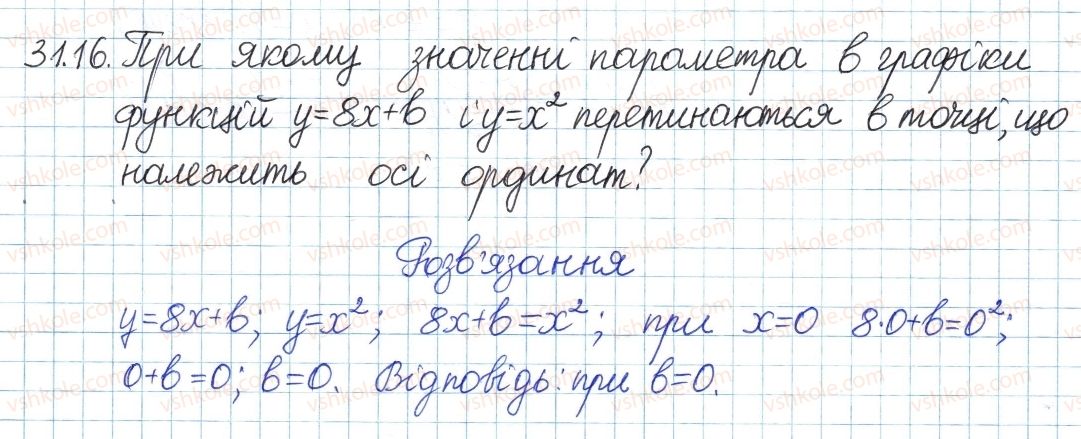 31.16. При якому значенні параметра в графіки
функцій y=8x+в і y=x² перетинаються в точці, що
належить осі ординат?
Розв'язання
y=8x+в; y=x²; 8x+в=x²; при x=0 8·0+в=0²;
0+в=0; в=0. Відповідь: при в=0.